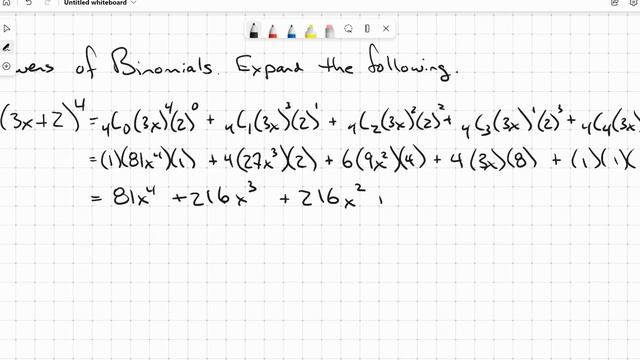 Untitled whiteboard
of Binomials. Expand the following.
(3x+2)^4 = ₄C₀(3x)^4(2)^0 + ₄C₁(3x)^3(2)^1 + ₄C₂(3x)^2(2)^2 + ₄C₃(3x)^1(2)^3 + ₄C₄(3x)
= (1)(81x^4)(1) + 4(27x^3)(2) + 6(9x^2)(4) + 4(3x)(8) + (1)(1)(
= 81x^4 + 216x^3 + 216x^2